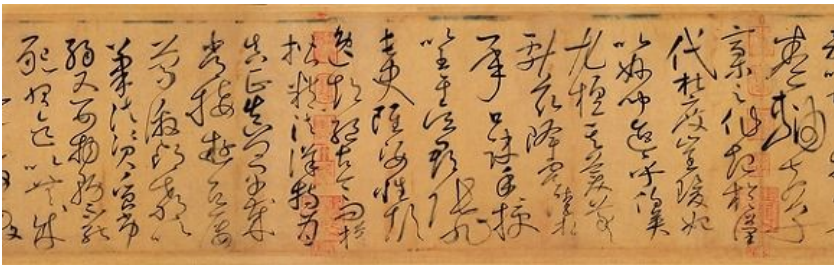 卷軸夫草
稾之作起於漢
代杜度崔瑗始
以妙聞迨乎伯英
尤擅其美羲
獻茲降虞陸相
承口訣手授
以至吳郡張旭
長史雖姿性顛
逸超絕古今而模
楷精法詳特為
真正真卿早歲
常接遊居屢
蒙激昂教以
筆法資質劣
弱又嬰物務不能
懇習迄以無成